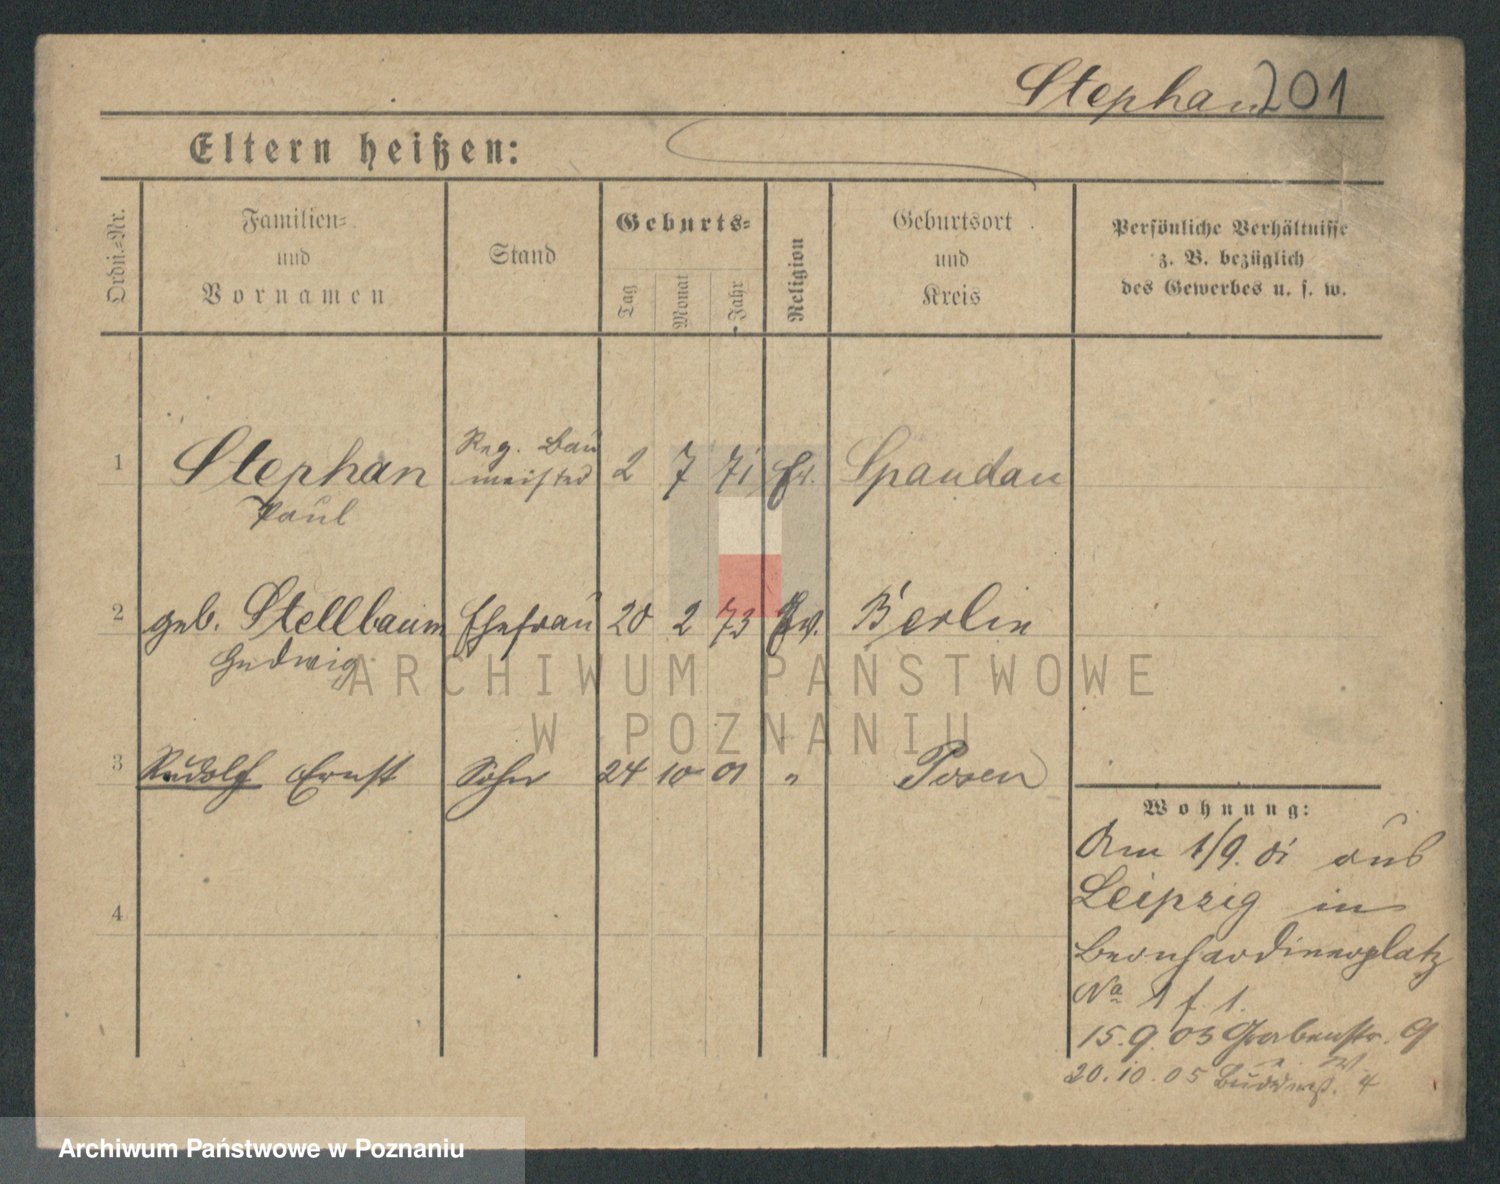 Stephan 201
Eltern heißen:
Ordn.=Nr.
Familien=
und
Vornamen
Stand
Geburts=
Tag
Monat
Jahr
Religion
Geburtsort
und
Kreis
Persönliche Verhältnisse
z. B. bezüglich
des Gewerbes u. s. w.
1 Stephan Reg. Bau 2 7 71 Ev. Spandau
meister
Paul
2 geb. Stellbaum Ehefrau 20 2 73 Ev. Berlin
Hedwig
3 Rudolf Ernst Sohn 24 10 01 " Posen
4
Wohnung:
Am 1/9. 01 aus
Leipzig in
Bernhardinerplatz
No 1 f. 1.
15.9.03 Grabenstr. 9
20.10.05 4
ARCHIWUM PAŃSTWOWE
W POZNANIU
Archiwum Państwowe w Poznaniu